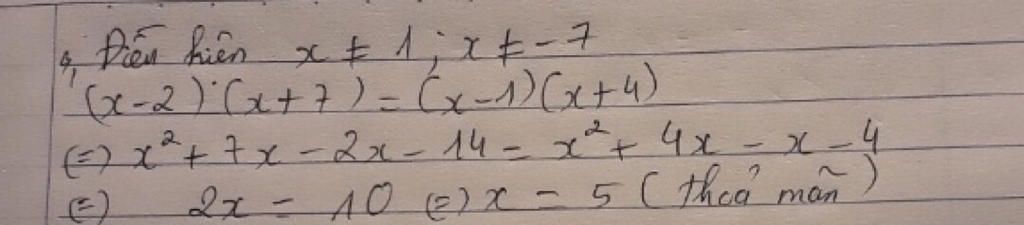 a, Điều kiện x ≠ 1 ; x ≠ -7
(x-2).(x+7) = (x-1)(x+4)
(=) x² + 7x - 2x - 14 = x² + 4x - x - 4
(=) 2x = 10 (=) x = 5 (thoả mãn)